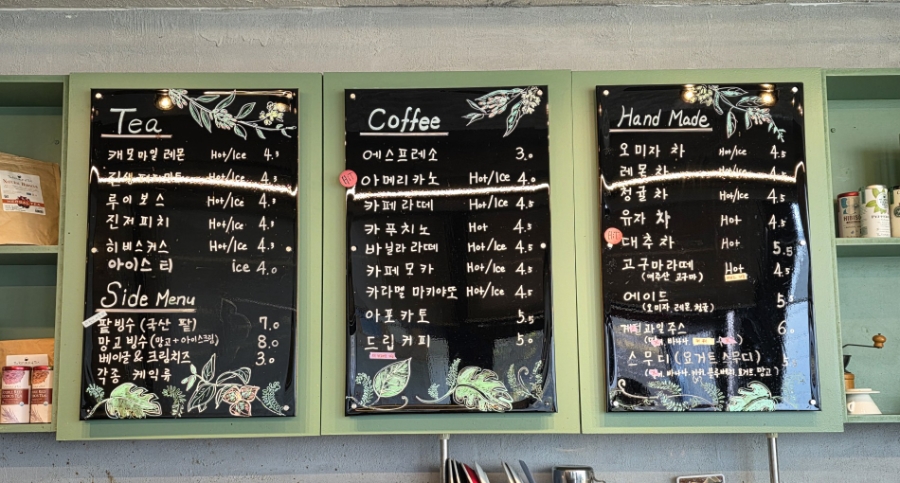 Tea
캐모마일 레몬 Hot/Ice 4.5
Hot/Ice 4.5
루이보스 Hot/Ice 4.5
진저피치 Hot/Ice 4.5
히비스커스 Hot/Ice 4.5
아이스티 ice 4.0
Side Menu
팥빙수 (국산 팥) 7.0
망고빙수 (망고+아이스크림) 8.0
베이글 & 크림치즈 3.0
각종 케익류
Coffee
에스프레소 3.0
HIT
아메리카노 Hot/Ice 4.0
카페라떼 Hot/Ice 4.5
카푸치노 Hot 4.5
바닐라라떼 Hot/Ice 4.5
카페모카 Hot/Ice 4.5
카라멜 마키아또 Hot/Ice 4.5
아포카토 5.5
드립커피 5.0
Hand Made
오미자 차 Hot/Ice 4.5
레몬 차 Hot/Ice 4.5
청귤 차 Hot/Ice 4.5
유자 차 Hot 4.5
HIT
대추차 Hot 5.5
고구마라떼 Hot 4.5
(여주산 고구마)
에이드 5.
(오미자, 레몬, 청귤)
계절과일주스 6.
바나나
스무디 (요거트스무디)
바나나